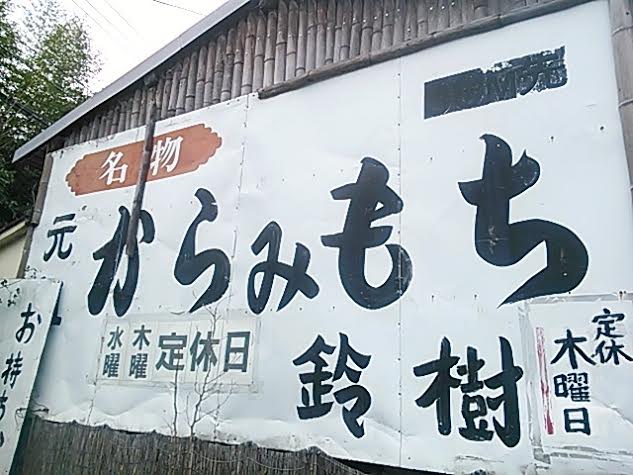 名物
元
からみもち
水曜 木曜 定休日
鈴樹
定休
木曜日
お持ちか